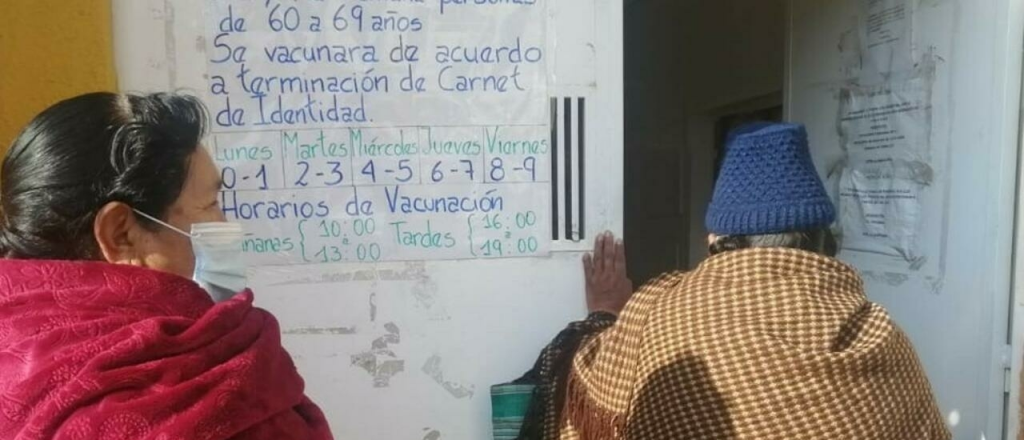 personas
de 60 a 69 años
Se vacunara de acuerdo
a terminación de Carnet
de Identidad.
Lunes Martes Miércoles Jueves Viernes
0-1 2-3 4-5 6-7 8-9
Horarios de Vacunación
10:00 16:00
Tardes
a a
13:00 19:00